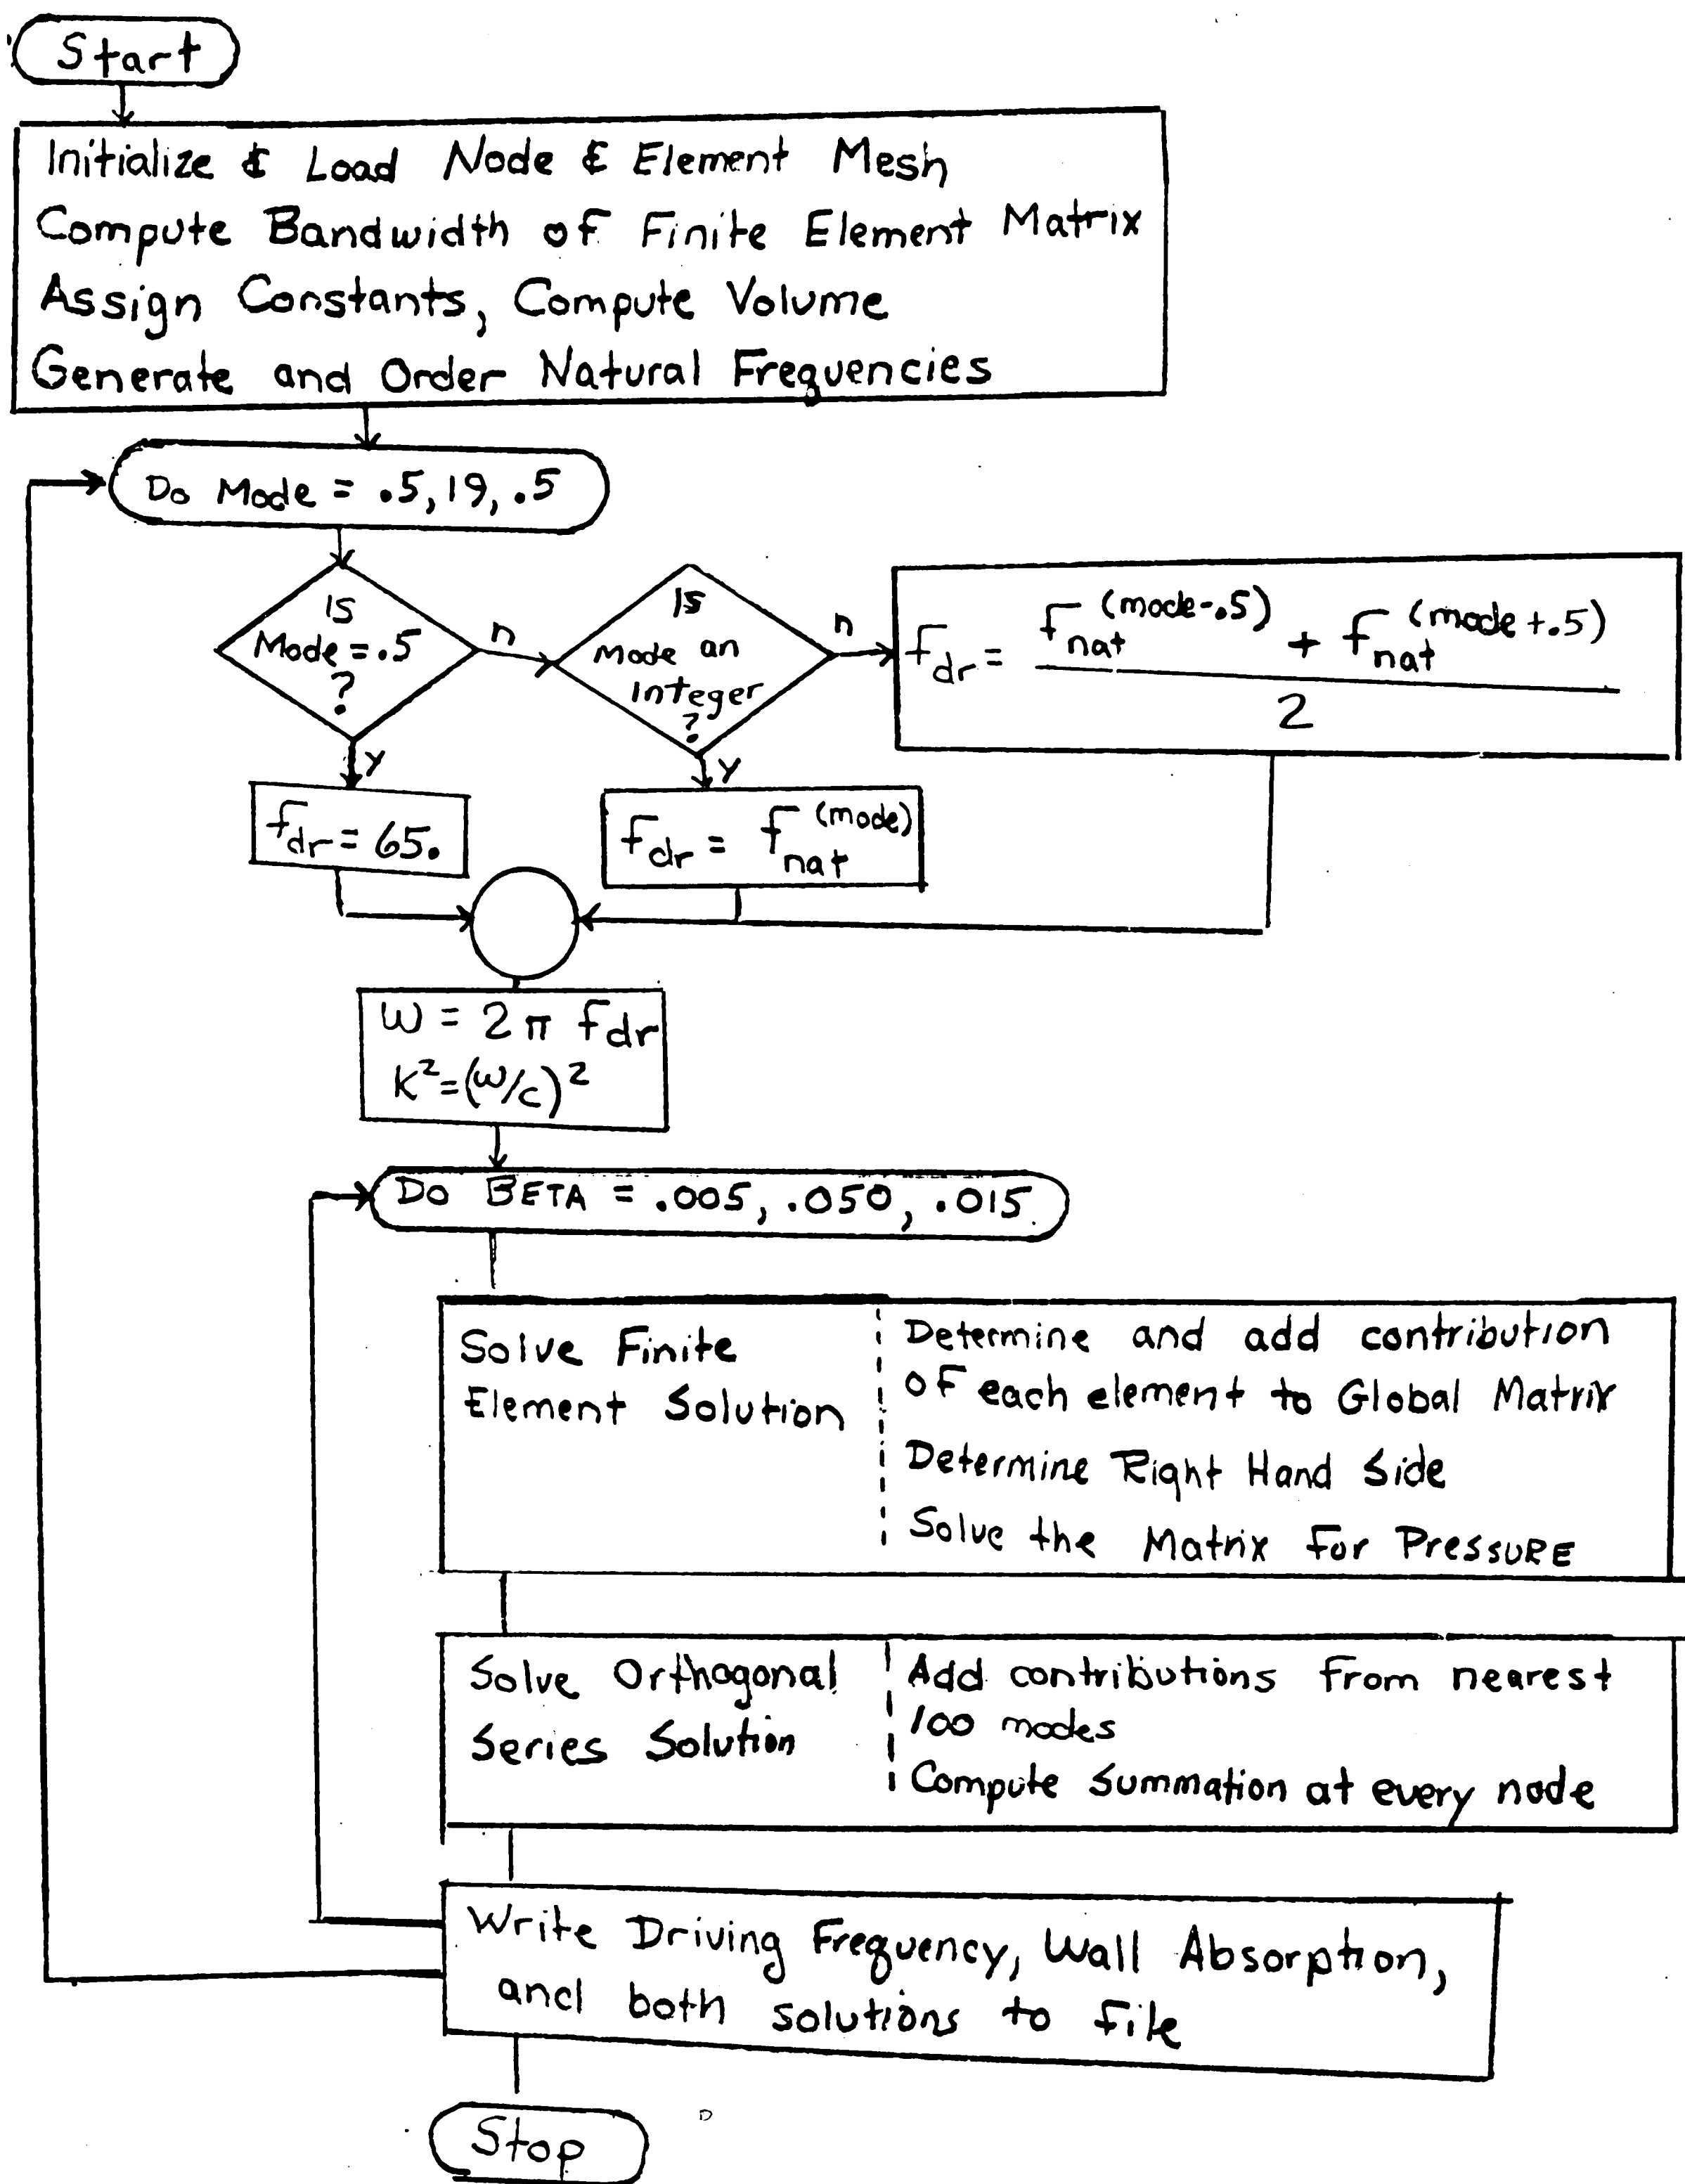 Start
Initialize & Load Node & Element Mesh
Compute Bandwidth of Finite Element Matrix
Assign Constants, Compute Volume
Generate and Order Natural Frequencies
Do Mode = .5, 19, .5
Is
Mode = .5
?
n
Is
Mode an
integer
?
n
f_dr = (f_nat^(mode-.5) + f_nat^(mode+.5)) / 2
y
y
f_dr = 65.
f_dr = f_nat^(mode)
ω = 2π f_dr
K² = (ω/c)²
Do BETA = .005, .050, .015
Solve Finite
Element Solution
Determine and add contribution
of each element to Global Matrix
Determine Right Hand Side
Solve the Matrix for PRESSURE
Solve Orthogonal
Series Solution
Add contributions from nearest
100 modes
Compute summation at every node
Write Driving Frequency, Wall Absorption,
and both solutions to file
Stop